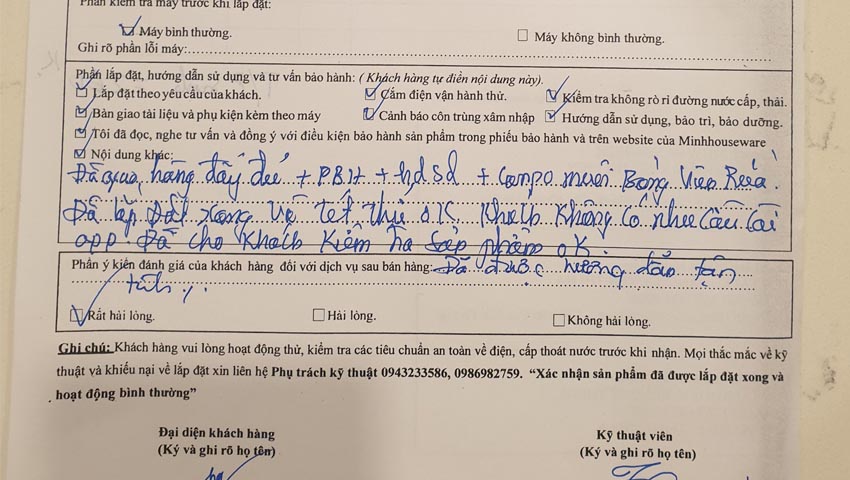 Phần kiểm tra máy trước khi lắp đặt:
Máy bình thường.
Máy không bình thường.
Ghi rõ phần lỗi máy:
Phần lắp đặt, hướng dẫn sử dụng và tư vấn bảo hành: ( Khách hàng tự điền nội dung này).
Lắp đặt theo yêu cầu của khách.
Cắm điện vận hành thử.
Kiểm tra không rò rỉ đường nước cấp, thải.
Bàn giao tài liệu và phụ kiện kèm theo máy
Cảnh báo côn trùng xâm nhập
Hướng dẫn sử dụng, bảo trì, bảo dưỡng.
Tôi đã đọc, nghe tư vấn và đồng ý với điều kiện bảo hành sản phẩm trong phiếu bảo hành và trên website của Minhhouseware
Nội dung khác:
Đã giao hàng đầy đủ + PBH + hdsd + Compo muối Bóng Viên Rửa.
Đã lắp Đặt xong và test thử OK. Khách Không Có nhu Cầu Cài
app. Đã cho Khách Kiểm tra Sản phẩm OK.
Phần ý kiến đánh giá của khách hàng đối với dịch vụ sau bán hàng: Đã được hướng dẫn tận
tình
Rất hài lòng.
Hài lòng.
Không hài lòng.
Ghi chú: Khách hàng vui lòng hoạt động thử, kiểm tra các tiêu chuẩn an toàn về điện, cấp thoát nước trước khi nhận. Mọi thắc mắc về kỹ
thuật và khiếu nại về lắp đặt xin liên hệ Phụ trách kỹ thuật 0943233586, 0986982759. “Xác nhận sản phẩm đã được lắp đặt xong và
hoạt động bình thường”
Đại diện khách hàng
(Ký và ghi rõ họ tên)
Kỹ thuật viên
(Ký và ghi rõ họ tên)